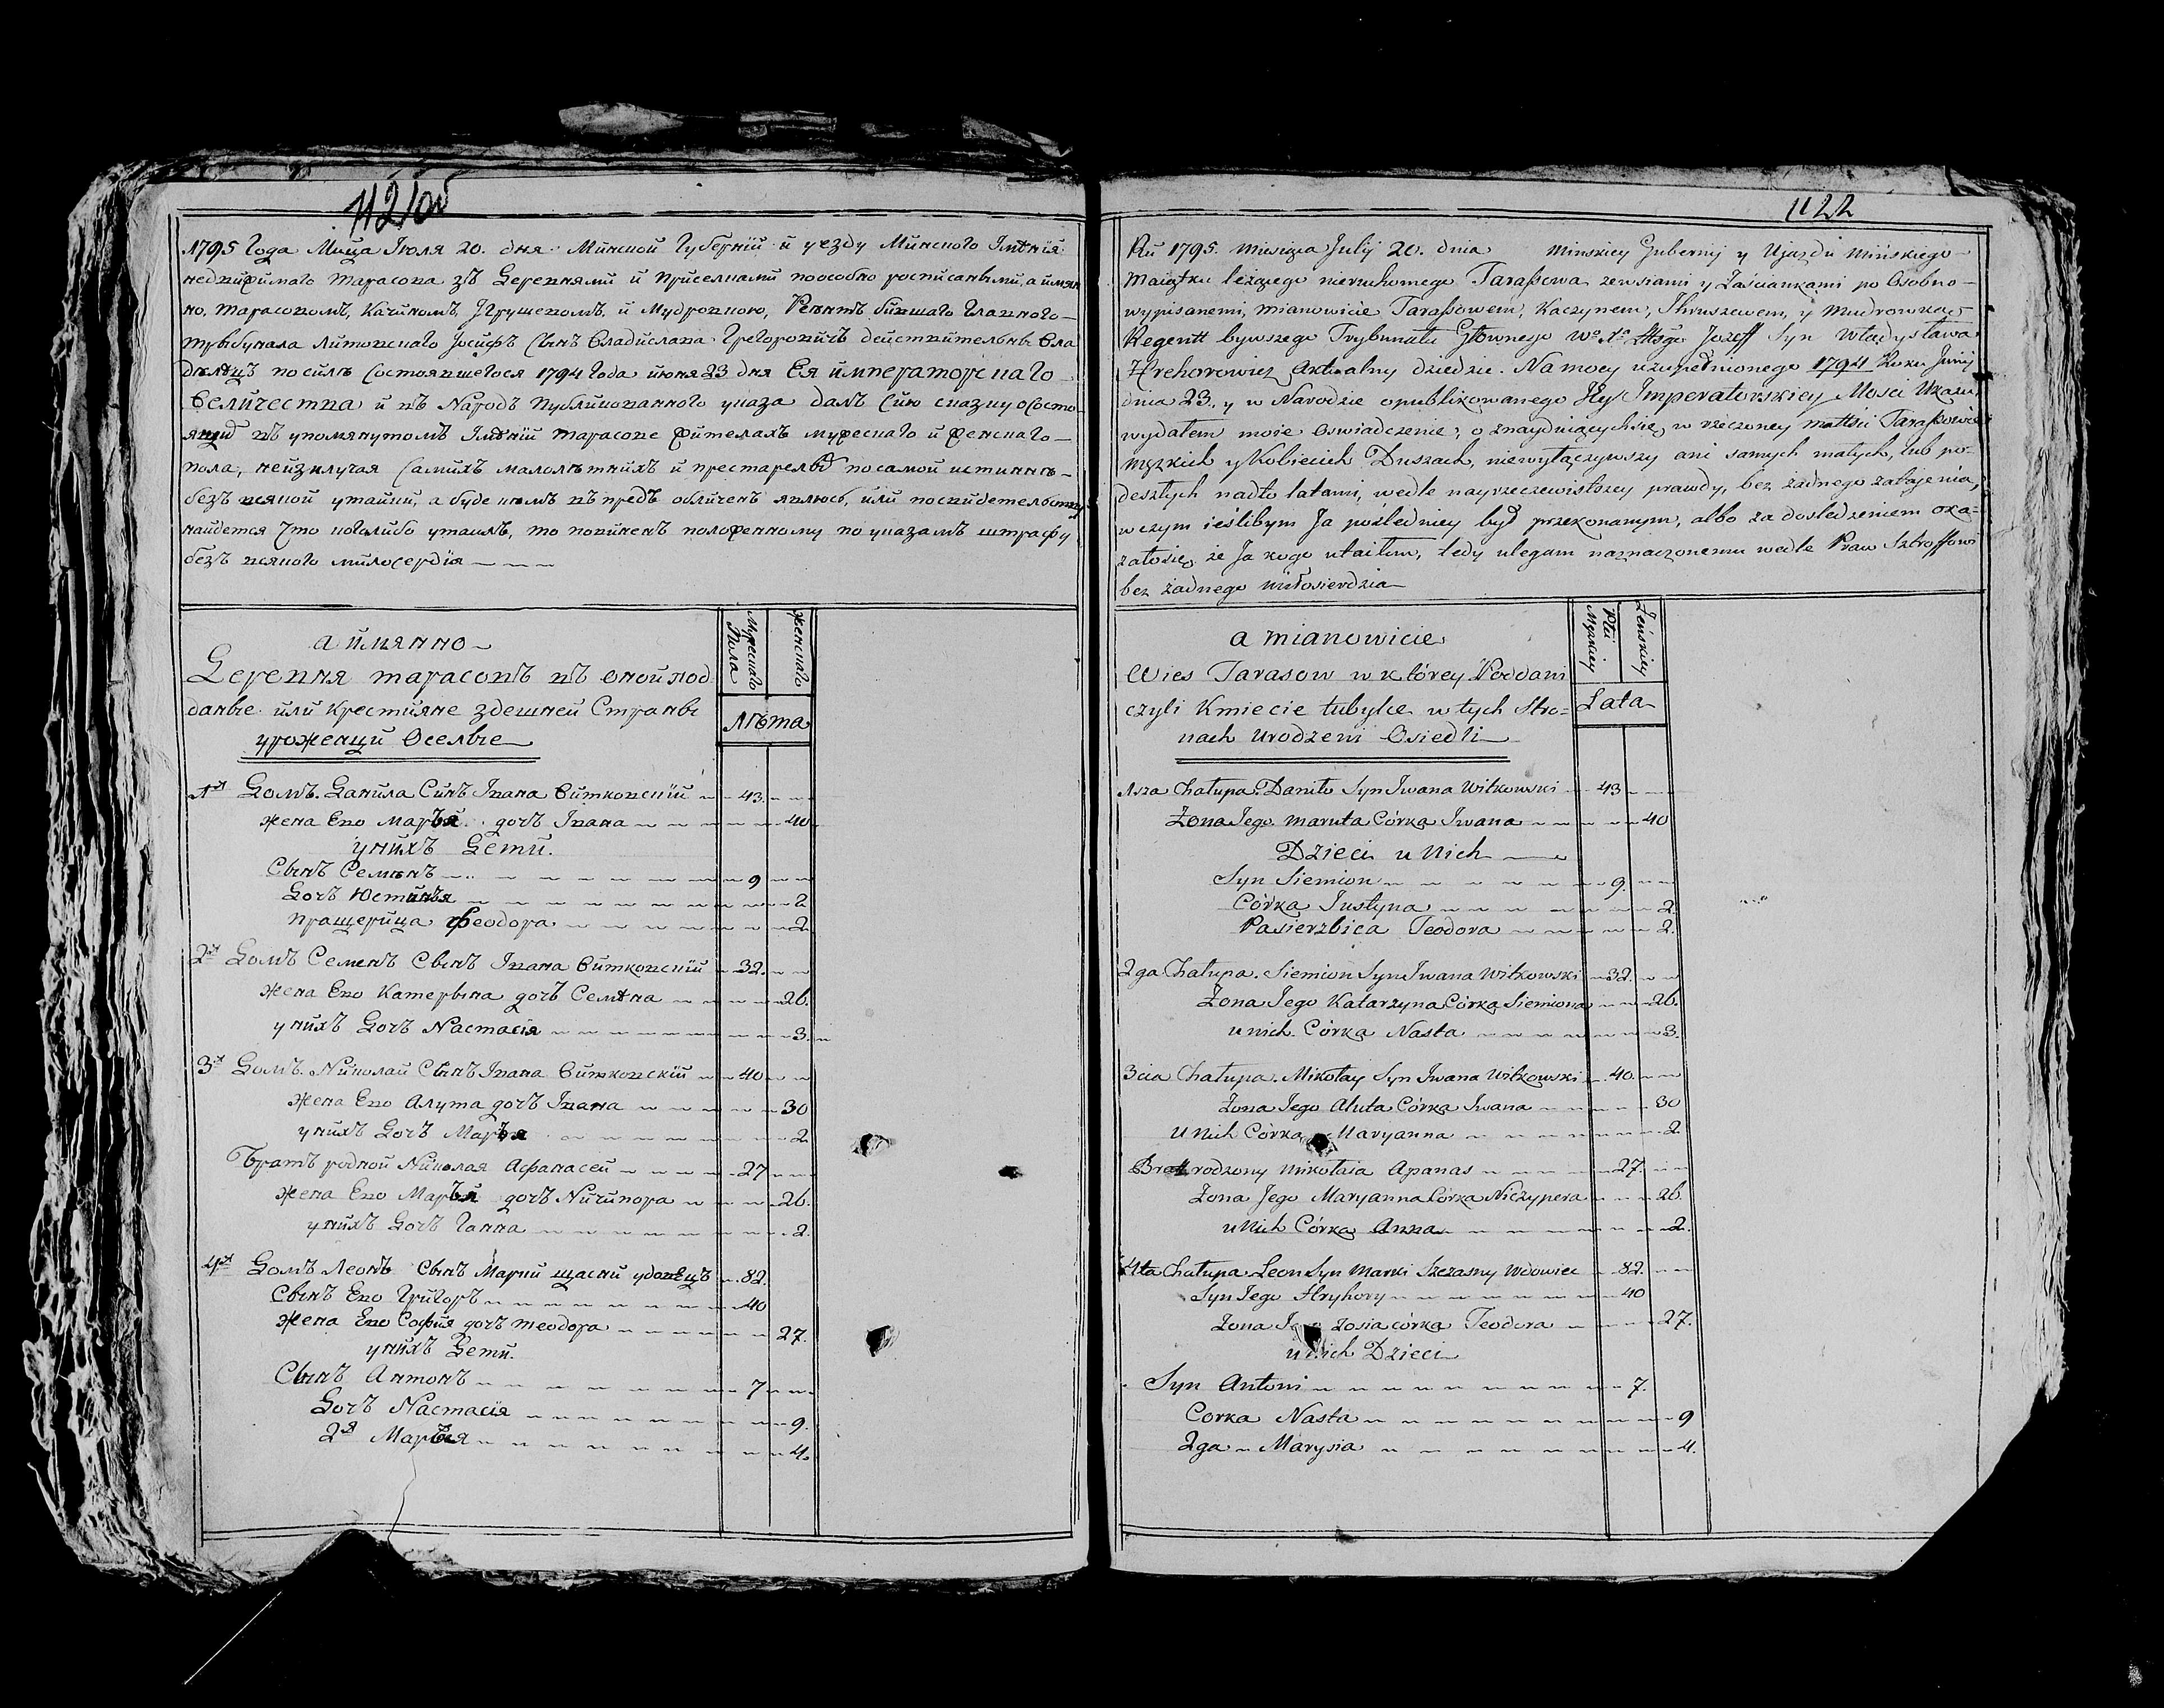 112 об
1795 Года Мца Іюля 20. дня Минской Губерніи и уезду Минского Імѣнія
недвижимаго Тарасова зъ Деревнями и приселками поособно росписанными, а имян
но, Тарасовомъ, Качиномъ, Ігрушевомъ, и Мудровкою, Реентъ бившаго Главного
трыбунала Литовскаго Іосифъ Сынъ Владислава Грегоровичъ действительны Вла
дѣлецъ посилѣ Состоявшегося 1794 Года июня 23 дня Ея императорскаго
Величества и въ Народъ публикованного указа далъ Сию сказку о Состо
ящид въ упомянутомъ Імѣніи тарасове жителахъ мужескаго и женскаго
пола, неизключая Самихъ малолѣтнихъ и престарелыд по самой истиннѣ
безъ всякой утайки, а буде кѣмъ въпредъ обличенъ явлюсь, или посвидетельству
найдется Что коголибо утаилъ, то повиненъ положенному по указамъ штрафу
безъ всякого милосердія
а имянно
Деревня тарасовъ въ оной под
даные или крестияне здешней Страны
уроженци Оселые
Мужескаго Пола
Женскаго
Лѣта
1й Домъ. Данила Синъ Івана Витковскій 43
жена Ево Марья дочъ Івана 40
унихъ Дети.
Сынъ Семенъ 9
Дочъ Юстинья 2
пращерица Феодора 2
2й Домъ Семенъ Сынъ Івана Витковскій 32.
жена Ево Катерына дочъ Семѣна 26.
унихъ Дочъ Настасія 3.
3й Домъ. Николай Сынъ Івана Витковскій 40
жена Ево Алута дочъ Івана 30
унихъ Дочъ Марья 2
Братъ родной Николая Афанасей 27
жена Ево Марья дочъ Ничипора 26.
унихъ Дочъ Ганна 2.
4й Домъ Леонъ Сынъ Марки щасни удовецъ 82.
Сынъ Ево Григоръ 40
жена Ево София дочъ теодора 27.
унихъ Дети.
Сынъ Антонъ 7
Дочъ Настасія 9.
2я Марья 4.
1122
Ru 1795. miesiąca Julij 20. dnia Minskiey Gubernij y Ujazdu Mińskiego
Maiątku leżącego nieruchomego Tarassowa zewsiami y Zaściankami po Osobno
wypisanemi, mianowicie Tarassowem, Kaczynem, Ihruszewem, y Mudrowką
Regentt bywszego Trybunału Głownego Wo Xo Littgo Jozeff Syn Władysława
Hrehorowicz Aktualny dziedzic. Na mocy uzupełnionego 1794 Roku Junij
dnia 23. y w Narodzie opublikowanego Jey Imperatorskiey Mosci Ukazu
wydałem moie oswiadczenie, o znayduiącychsię w rzeczoney mattści Tarassowie
męzkich y Kobiecich Duszach, niewyłączywszy ani samych małych, lub po-
deszłych nadto latami, wedle nayrzeczewistszey prawdy, bez żadnego zatajenia,
wczym ieślibym Ja pośledniey był przekonanym, albo za dosledzeniem oka=
załosię że Ja kogo utaiłem, tedy ulegam naznaczonemu wedle Praw Sztroffowi
bez żadnego miłosierdzia
a mianowicie
Wies Tarasow w którey Poddani
czyli Kmiecie tubylce w tych Stro=
nach urodzeni Osiedli
Płci Męzkiey
Żeńskiey
Lata
1sza Chałupa. Daniło Syn Iwana Witkowski 43
Żona Jego Maruta Córka Iwana 40
Dzieci u Nich
Syn Siemion 9.
Córka Justyna 2.
Pasierzbica Teodora 2.
2ga Chałupa. Siemion Syn Iwana Witkowski 32.
Żona Jego Katarzyna Córka Siemiona 26.
u nich Córka Nasta 3.
3cia Chałupa. Mikołay Syn Iwana Witkowski 40.
Żona Jego Aluta Córka Iwana 30
U Nich Córka Maryanna 2
Bratt rodzony Mikołaia Apanas 27.
Żona Jego Maryanna Córka Niczypera 26.
u Nich Córka Anna 2.
4ta Chałupa. Leon Syn Marki Szczasny Wdowiec 82.
Syn Jego Hryhory 40
Żona Jego Zosia córka Teodora 27.
u Nich Dzieci
Syn Antoni 7.
Corka Nasta 9
2ga Marysia 4.